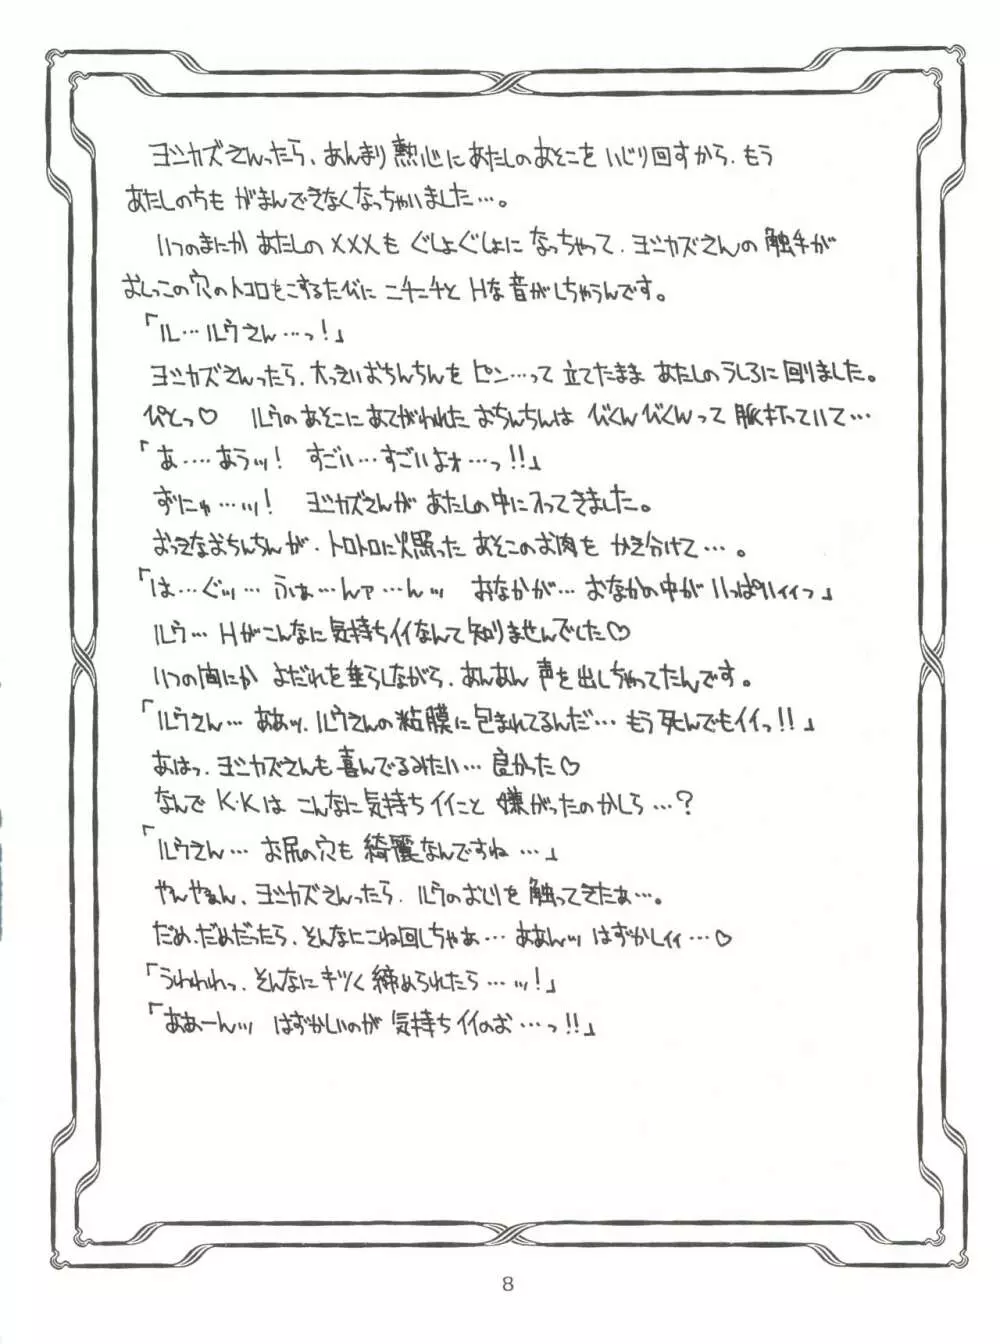 ヨシカズさんったら、あんまり熱心にあたしのあそこを いじり回すから、もう
あたしのちも がまんできなくなっちゃいました…。
いつのまにか あたしの×××も ぐしょぐしょに なっちゃって、ヨシカズさんの 触手が
おしっこの穴のトコロをこするたびに ニチニチと Hな音がしちゃうんです。
「ル…ルウさん…っ！」
ヨシカズさんったら、大っきいおちんちんを ピン…って 立てたまま あたしのうしろに 回りました。
ぴとっ♡ ルウのあそこに あてがわれた おちんちんは びくんびくんって 脈打っていて…
「あ……あうッ！ すごい…すごいよォ…っ！！」
ずにゅ…ッ！ ヨシカズさんが あたしの中に入ってきました。
おっきなおちんちんが、トロトロに火照った あそこのお肉を かき分けて…。
「は…ぐッ… ふぁ…んァ…んッ おなかが… おなかの中が いっぱいィィっ」
ルウ… Hがこんなに 気持ちイイなんて 知りませんでした♡
いつの間にか よだれを垂らしながら、あんあん 声を出しちゃってたんです。
「ルウさん… ああッ、ルウさんの粘膜に 包まれてるんだ… もう 死んでもイイっ！！」
あはっ、ヨシカズさんも 喜んでるみたい… 良かった♡
なんで K・Kは こんなに 気持ちイイこと 嫌がったのかしら…？
「ルウさん… お尻の穴も 綺麗なんですね…」
やんやぁん、ヨシカズさんったら、ルウのおしりを 触ってきたぁ…。
だめ、だめだったら、そんなにこね回しちゃあ… ああんッ はずかしィィ…♡
「うわわわっ、そんなにキツく 締められたら…ッ！」
「ああーんッ はずかしいのが 気持ちイイのお…っ！！」
8